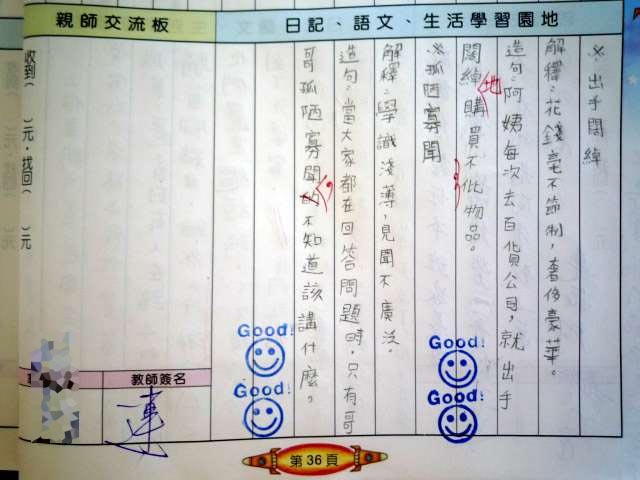 親師交流板
日記、語文、生活學習園地
※出手闊綽
解釋：花錢毫不節制，奢侈豪華。
造句：阿姨每次去百貨公司，就出手
闊綽地購買不化物品。
※孤陋寡聞
解釋：學識淺薄，見聞不廣泛。
造句：當大家都在回答問題時，只有哥
哥孤陋寡聞的，不知道該講什麼。
收到（ ）元，找回（ ）元
Good!
Good!
Good!
Good!
教師簽名
第36頁